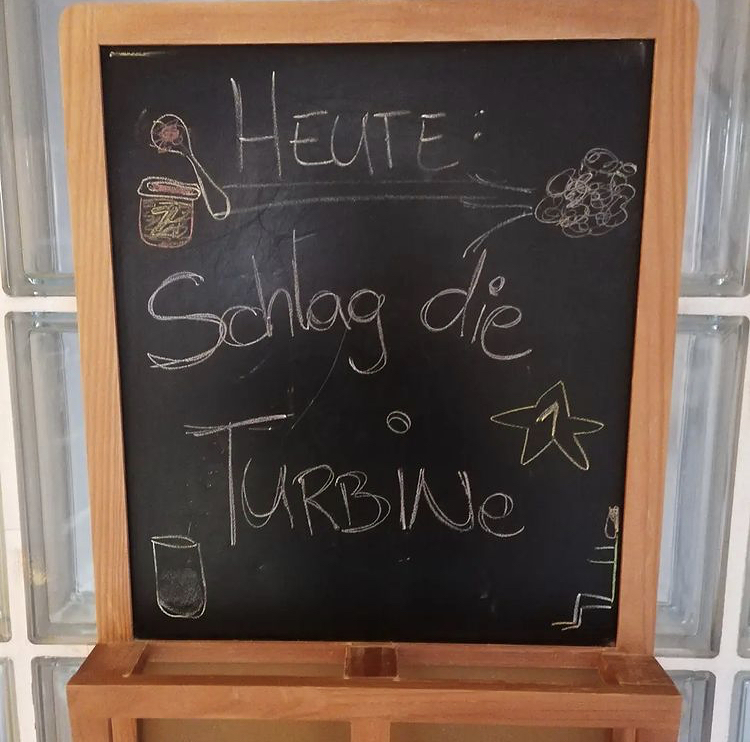 HEUTE:
Schlag die
TURBINe
1